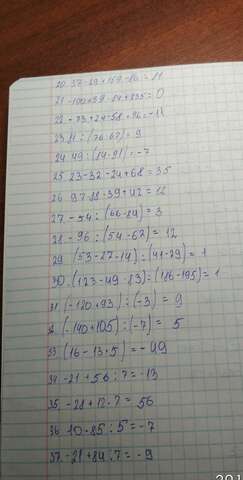 21 -100+39-84+235=0
23 81:(76-67)=9
24 49:(84-91)=-7
25 23-32-24+68=35
26 97-88-39+42=12
27 -54:(66-84)=3
28 -96:(54-62)=12
29 (53-27-14):(41-29)=1
30.(123-49-83):(186-195)=1
31 (-120+93):(-3)=9
32 (-140+105):(-7)=5
33 (16-13+5)=-49
34 -21+56:7=-13
35. -28+12·7=56
36 10-85:5=-7
37. -21+84:7=-9